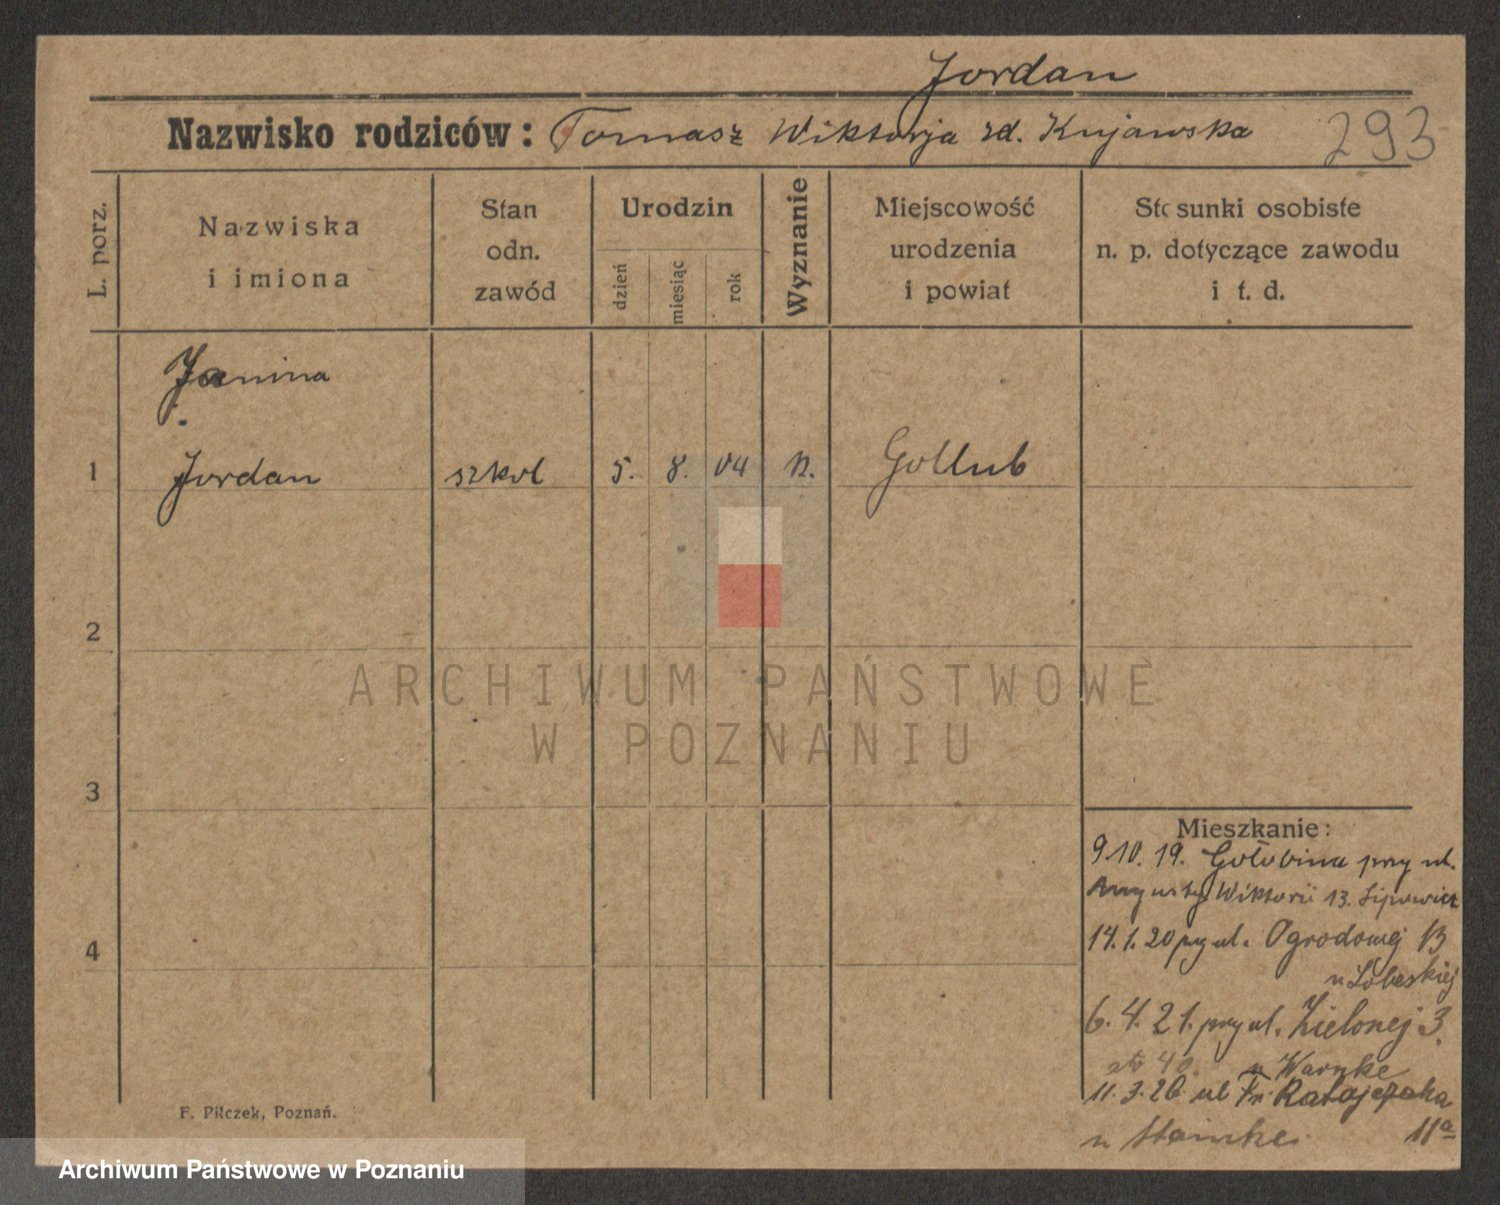 Jordan
Nazwisko rodziców: Tomasz Wiktorja zd. Kujawska 293
L. porz.
Nazwiska
i imiona
Stan
odn.
zawód
Urodzin
dzień
miesiąc
rok
Wyznanie
Miejscowość
urodzenia
i powiat
Stosunki osobiste
n. p. dotyczące zawodu
i t. d.
Janina
1 Jordan szkol 5. 8. 04 Gollub
2
ARCHIWUM PAŃSTWOWE
W POZNANIU
3
Mieszkanie:
9.10.19. przy ul.
Augusty Wiktorii 13. Lipowicz
4
14.1.20 przy ul. Ogrodowej 13
u Łobeskiej
6.4.21. przy ul. Zielonej 3.
40. u Warnke
11.3.26 ul Fr. Ratajczaka
u 11a
F. Pilczek, Poznań.
Archiwum Państwowe w Poznaniu